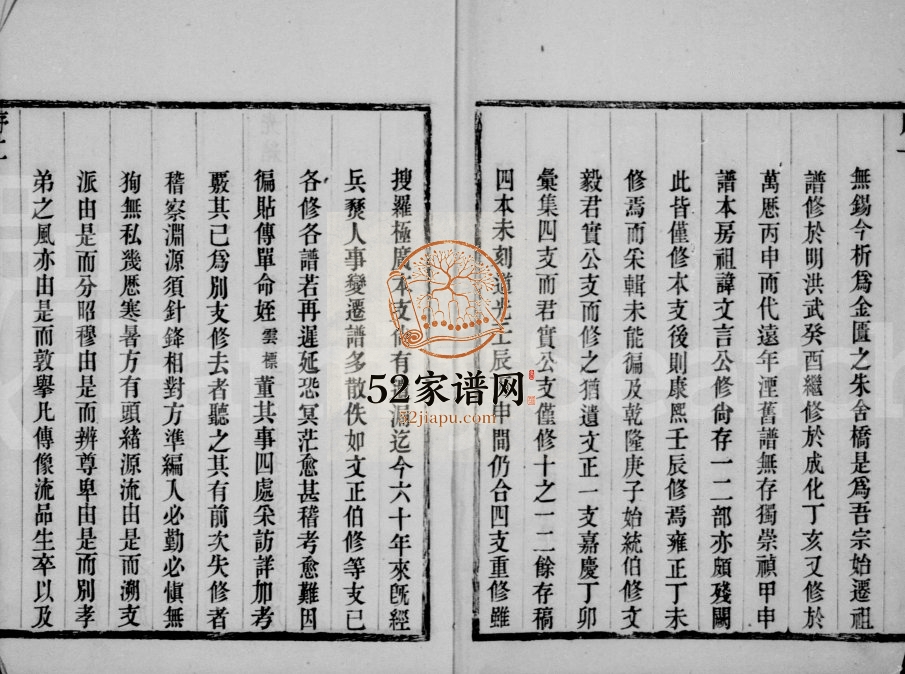 無錫今析爲金匱之朱舍橋是爲吾宗始遷祖
譜修於明洪武癸酉繼修於成化丁亥又修於
萬厯丙申而代遠年湮舊譜無存獨崇禎甲申
譜本房祖諱文言公修尙存一二部亦頗殘闕
此皆僅修本支後則康熙壬辰修焉雍正丁未
修焉而采輯未能徧及乾隆庚子始統伯修文
毅君實公支而修之猶遺文正一支嘉慶丁卯
彙集四支而君實公支僅修十之一二餘存稿
四本未刻道光壬辰 申間仍合四支重修雖
搜羅極廣本支 有 漏迄今六十年來旣經
兵燹人事變遷譜多散佚如文正伯修等支已
各修各譜若再遲延恐冥茫愈甚稽考愈難因
徧貼傳單命姪雲標董其事四處采訪詳加考
覈其已爲別支修去者聽之其有前次失修者
稽察淵源須針鋒相對方準編入必勤必愼無
狥無私幾厯寒暑方有頭緒源流由是而溯支
派由是而分昭穆由是而辨尊卑由是而別孝
弟之風亦由是而敦擧凡傳像流品生卒以及
52家谱网
52jiapu.com